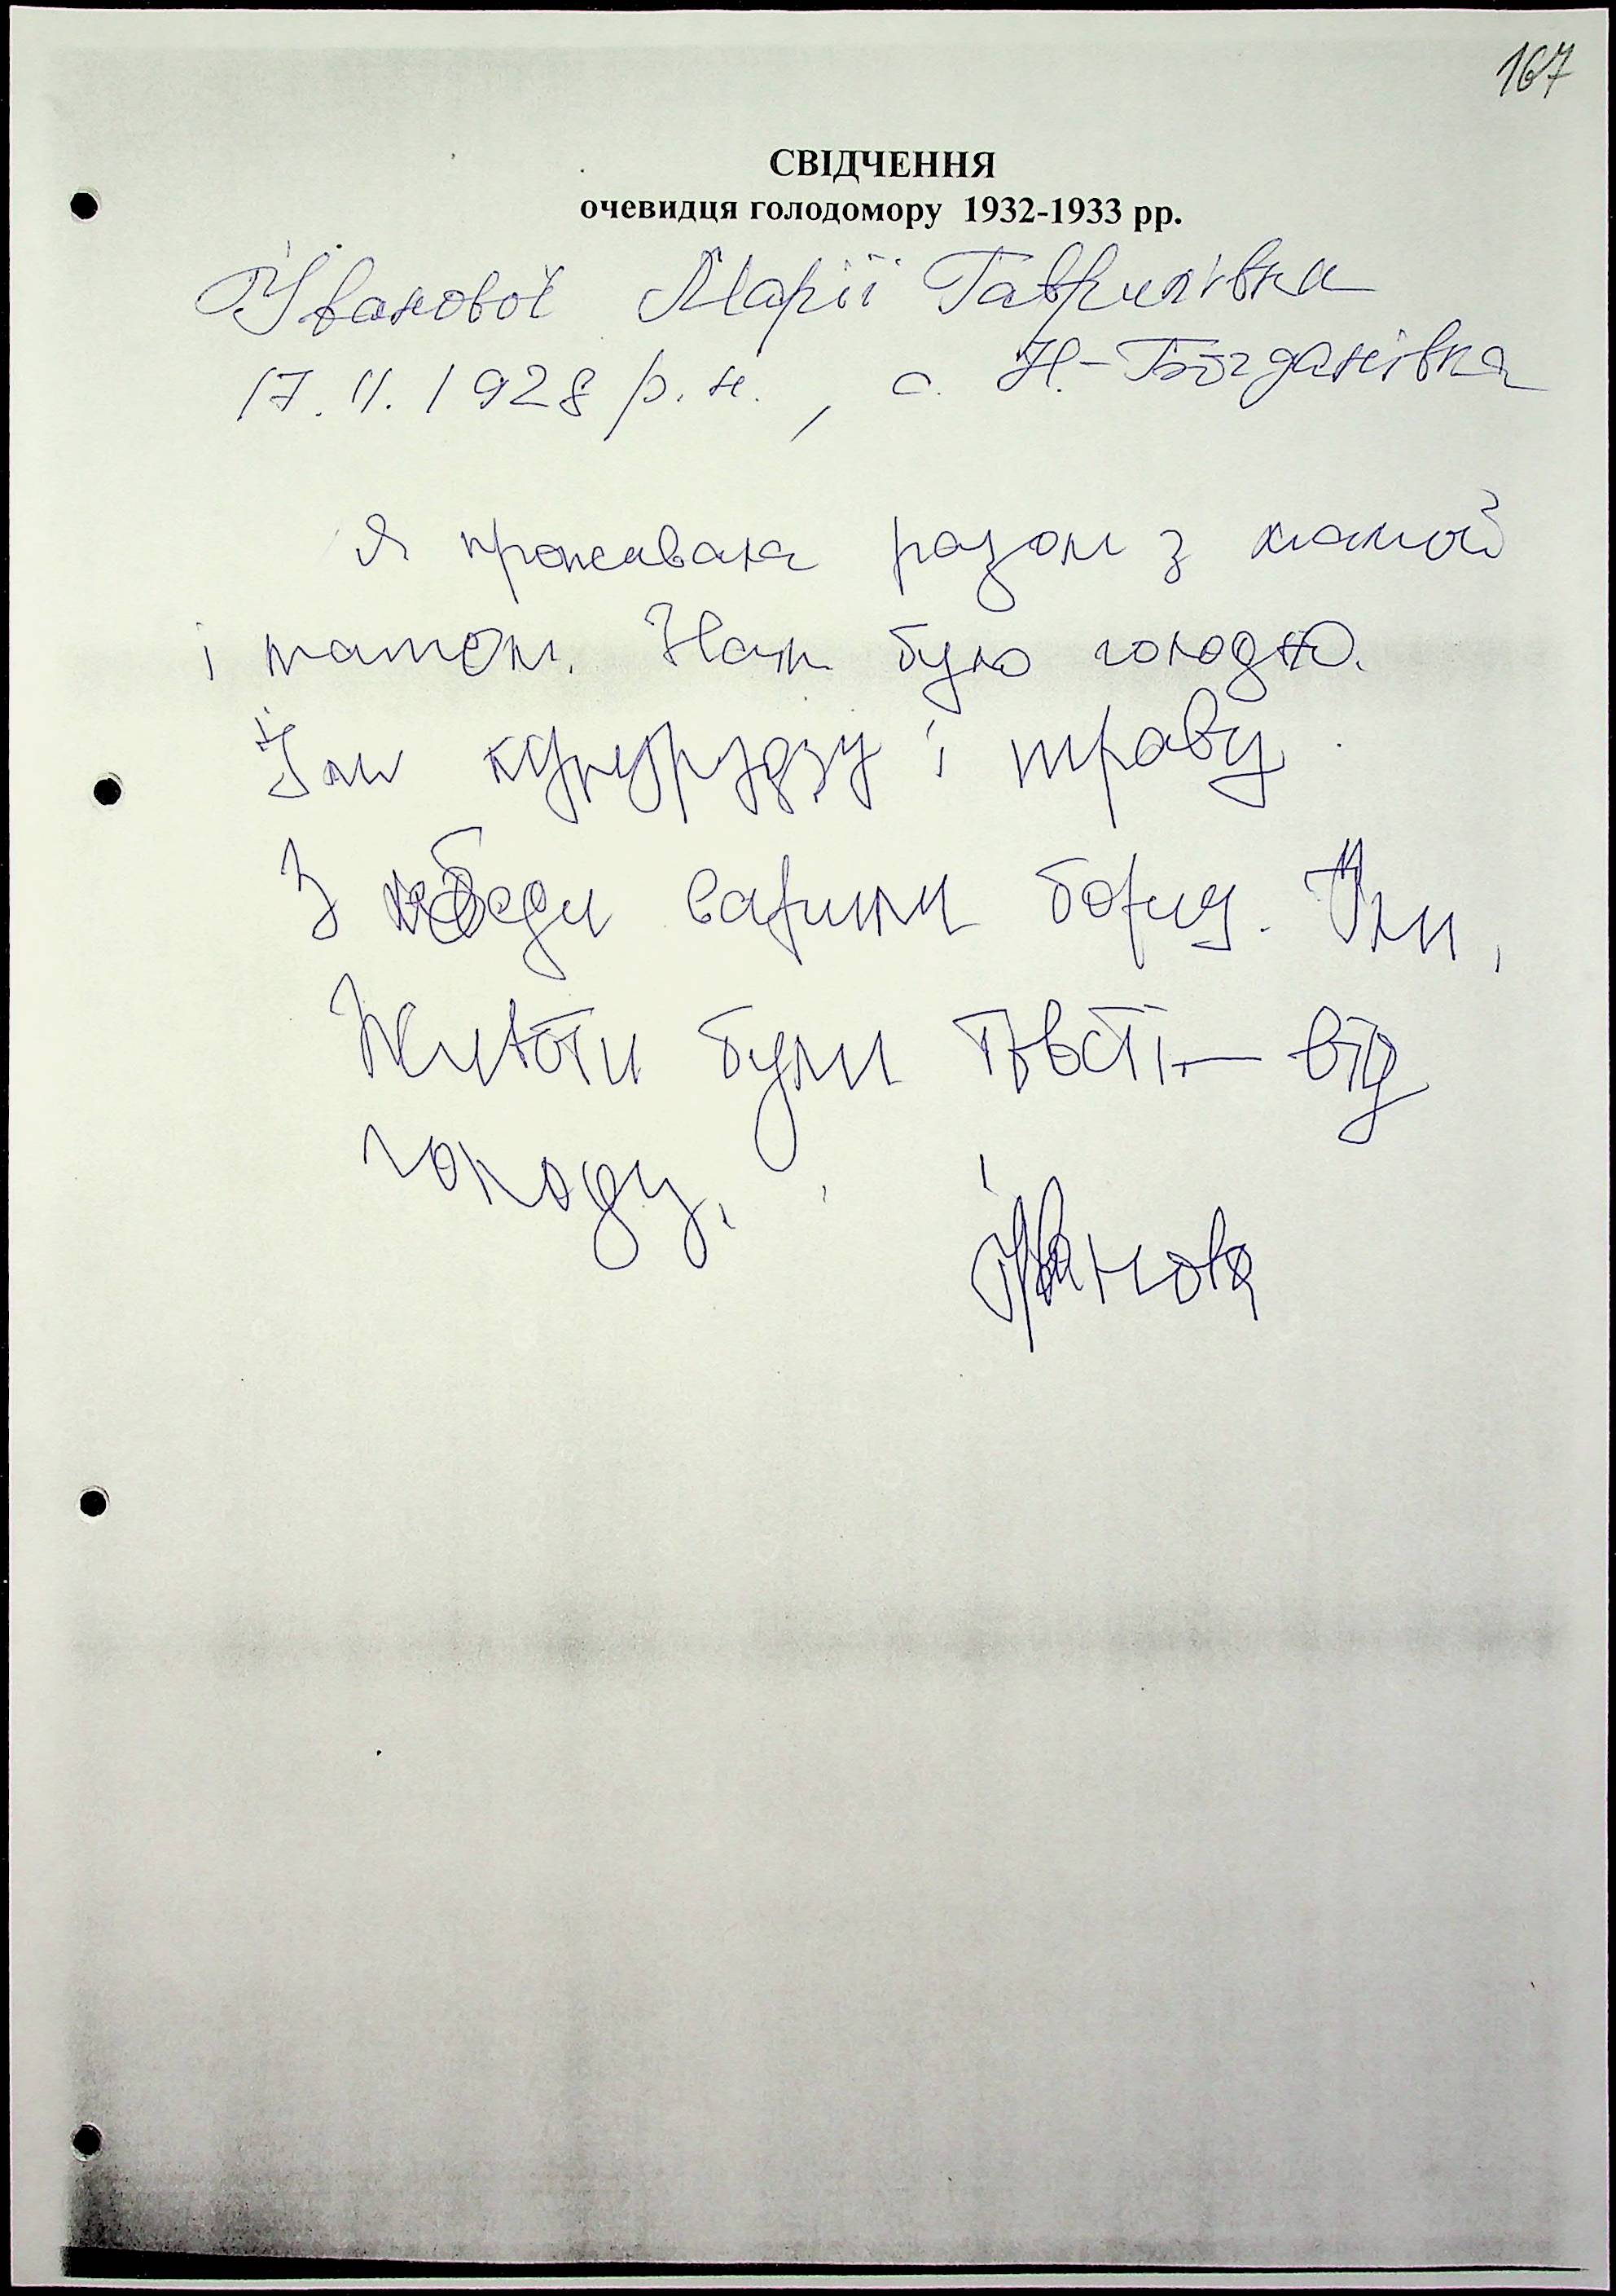 167
СВІДЧЕННЯ
очевидця голодомору 1932-1933 рр.
Іванової Марії Гаврилівна
17.11.1928 р.н., с. Н.-Богданівка
Я проживала разом з мамой
і татом. Нам було голодно.
Їли кукурудзу і траву.
З лебеди варили борщ. Їли,
Животи були товсті – від
голоду.
Іванова